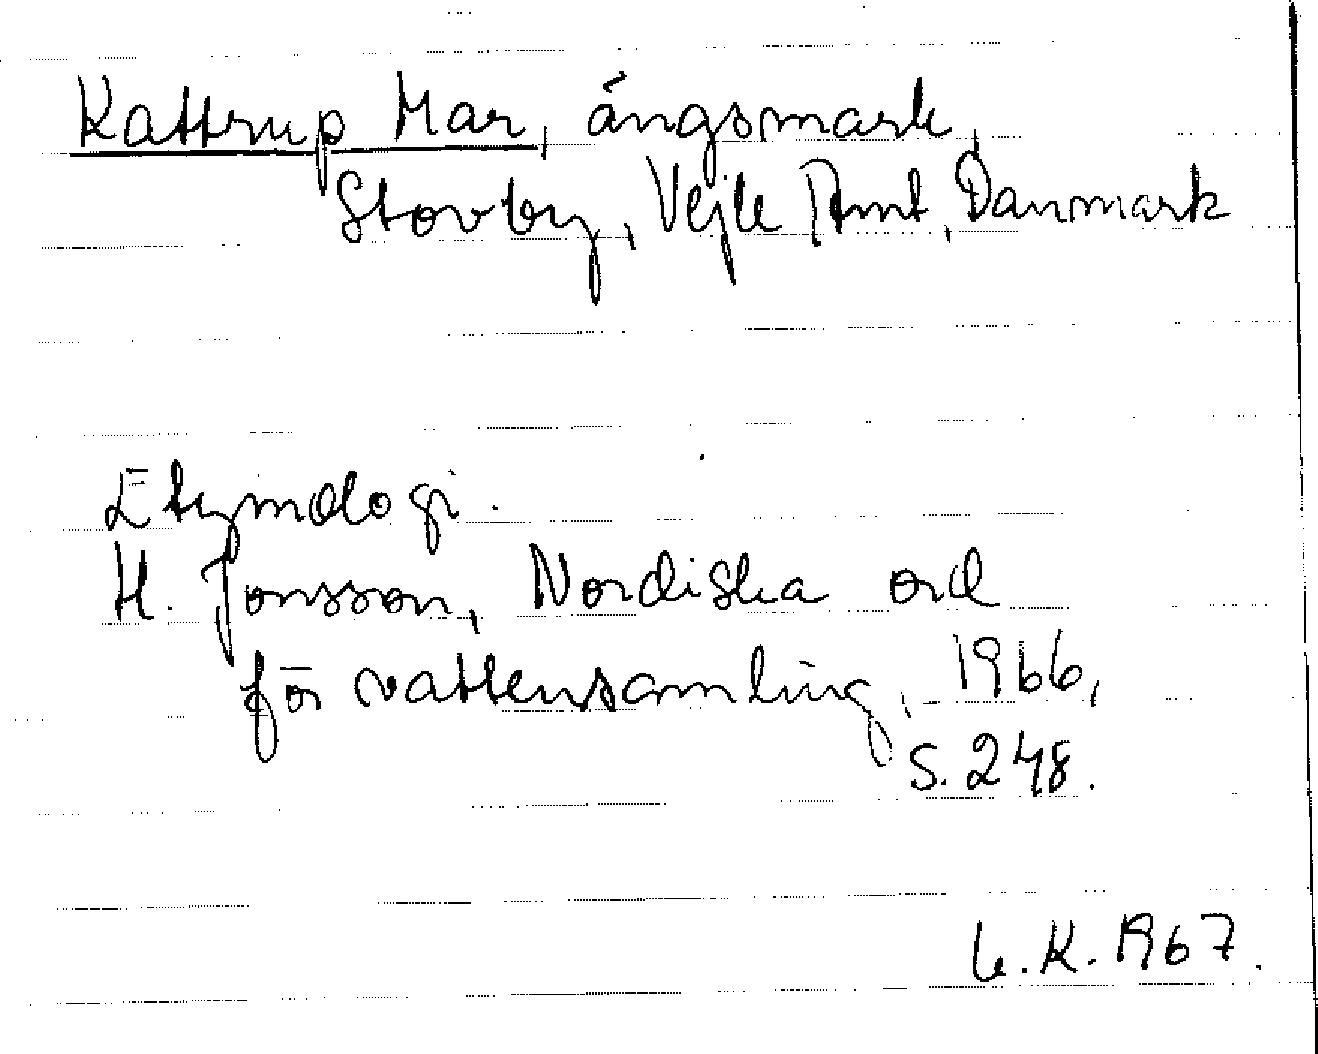 Kattrup Mar, ängsmark,
Stovby, Vejle Amt, Danmark
Etymologi.
H. Jonsson, Nordiska ord
för vattensamling, 1966,
S. 248.
K. 1967.